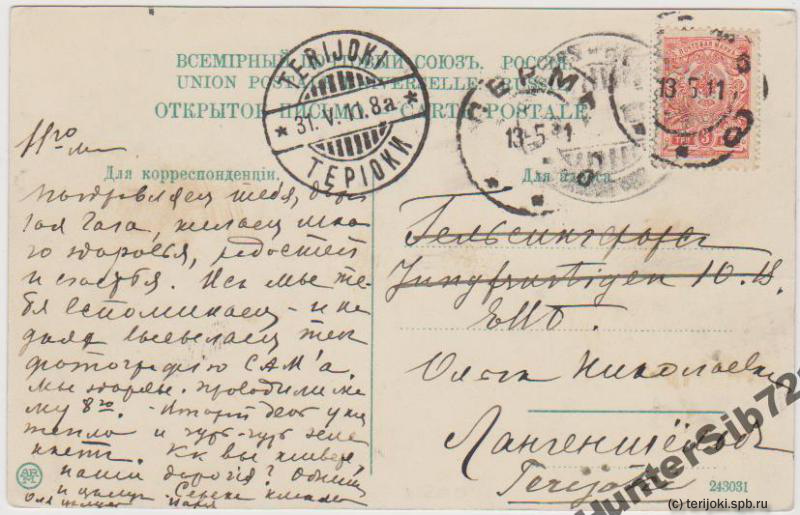 ВСЕМІРНЫЙ ПОЧТОВЫЙ СОЮЗЪ. РОССІЯ.
UNION POSTALE UNIVERSELLE. RUSSIE.
ОТКРЫТОЕ ПИСЬМО. CARTE POSTALE.
TERIJOKI
31.V.11.8a
ТЕРІОКИ
PERM
13.5.11
13.5.11
ПОЧТОВАЯ МАРКА
ТРИ 3 КОП
Для корреспонденціи.
Для адреса.
11го
Поздравляем тебя,
тая Гага, желаем мно
го здоровья, радостей
и счастья. Все мы те
бя вспоминаем - и на
днях высылаем тебе
фотографію САМ'а.
мы здоровы. Проводили ма
му 8го. - Второй день у нас
тепло и чуть-чуть зеле
неет. Как вы живете,
наши дорогія?
и целуем.
Гельсингфорсъ
Jungfrustigen 10. B.
ЕВБ.
Ольга Николаевна
Лангеншёльд
Terijoki
ARM
243031
HunterSib72
(c) terijoki.spb.ru